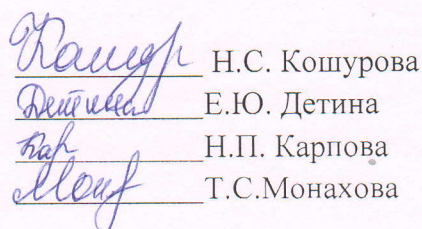 Кошур Н.С. Кошурова
Детина Е.Ю. Детина
Кар Н.П. Карпова
Мон Т.С.Монахова